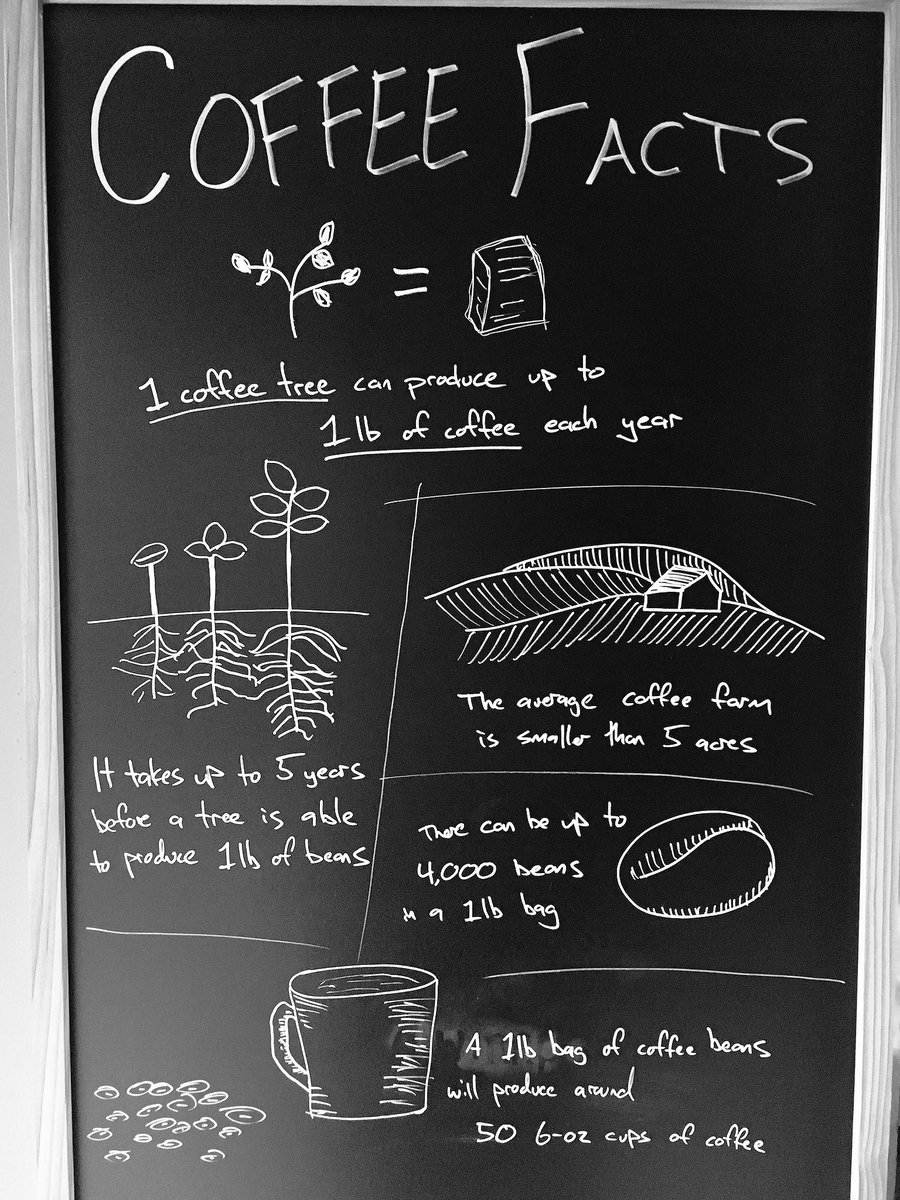 COFFEE FACTS
=
1 coffee tree can produce up to
1 lb of coffee each year
It takes up to 5 years
before a tree is able
to produce 1lb of beans
The average coffee farm
is smaller than 5 acres
There can be up to
4,000 beans
in a 1lb bag
A 1lb bag of coffee beans
will produce around
50 6-oz cups of coffee